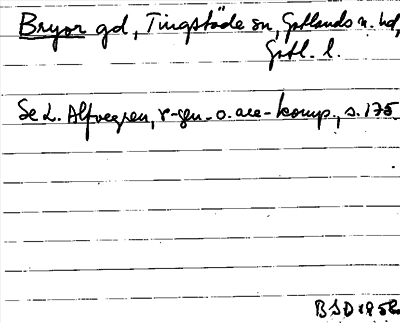 Bryor gd, Tingstäde sn, Gotlands n. hd,
Gotl. l.
Se L. Alfvegren, r-gen- o. ace-komp., s. 175
BSD 1952